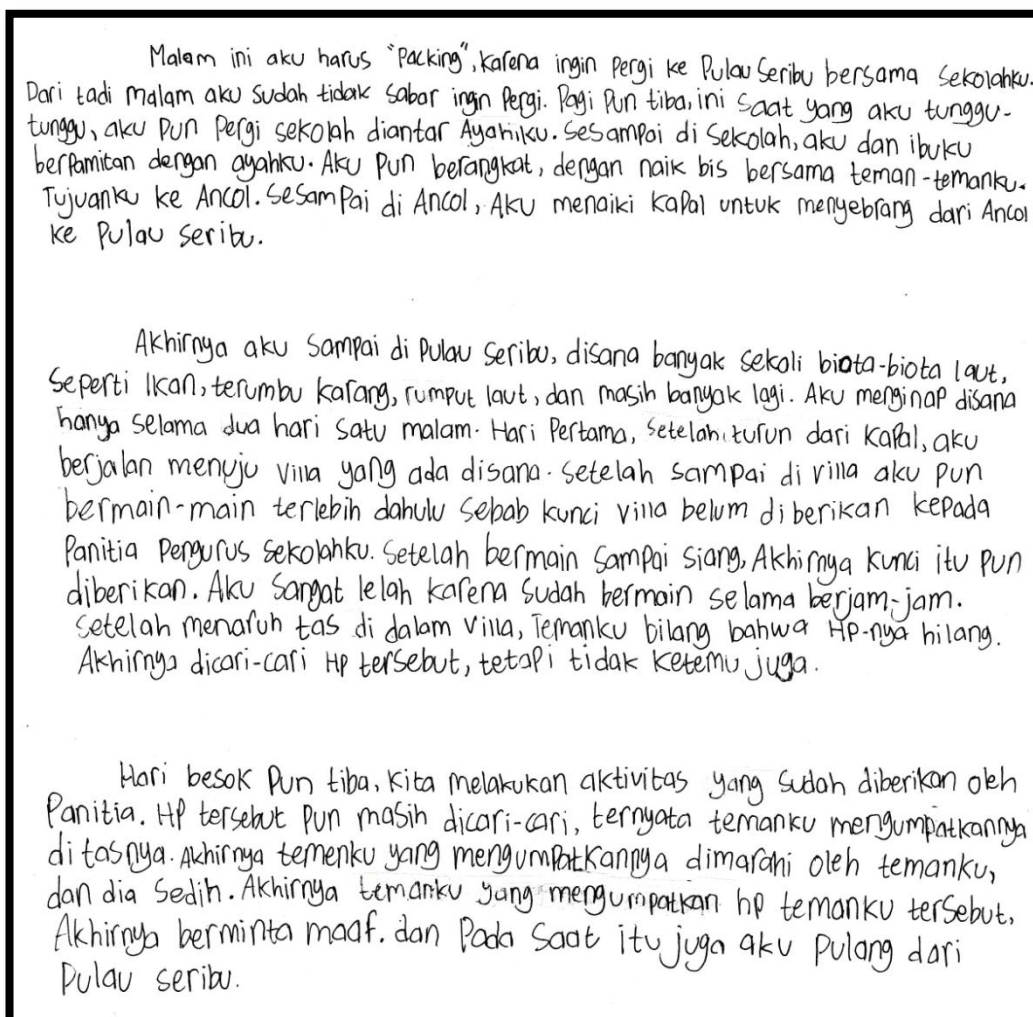 Malam ini aku harus "Packing", karena ingin pergi ke Pulau Seribu bersama sekolahku.
Dari tadi malam aku sudah tidak sabar ingin pergi. Pagi pun tiba, ini saat yang aku tunggu-
tunggu, aku pun pergi sekolah diantar Ayahku. Sesampai di sekolah, aku dan ibuku
berpamitan dengan ayahku. Aku pun berangkat, dengan naik bis bersama teman-temanku.
Tujuanku ke Ancol. Sesampai di Ancol, Aku menaiki kapal untuk menyebrang dari Ancol
ke Pulau seribu.
Akhirnya aku sampai di Pulau seribu, disana banyak sekali biota-biota laut,
seperti Ikan, terumbu karang, rumput laut, dan masih banyak lagi. Aku menginap disana
hanya selama dua hari satu malam. Hari Pertama, setelah turun dari kapal, aku
berjalan menuju villa yang ada disana. setelah sampai di villa aku pun
bermain-main terlebih dahulu sebab kunci villa belum diberikan kepada
Panitia pengurus sekolahku. Setelah bermain sampai siang, Akhirnya kunci itu pun
diberikan. Aku sangat lelah karena sudah bermain selama berjam-jam.
setelah menaruh tas di dalam villa, Temanku bilang bahwa HP-nya hilang.
Akhirnya dicari-cari HP tersebut, tetapi tidak ketemu juga.
Hari besok pun tiba, kita melakukan aktivitas yang sudah diberikan oleh
Panitia. HP tersebut pun masih dicari-cari, ternyata temanku mengumpatkannya
di tasnya. Akhirnya temenku yang mengumpatkannya dimarahi oleh temanku,
dan dia sedih. Akhirnya temanku yang mengumpatkan hp temanku tersebut,
Akhirnya berminta maaf. dan Pada saat itu juga aku pulang dari
Pulau seribu.